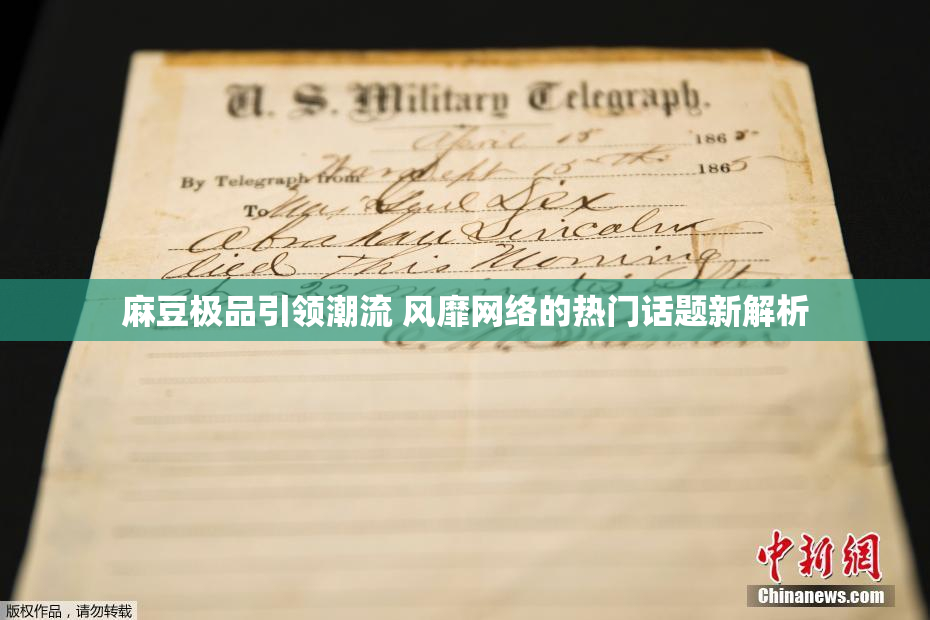 U. S. Military Telegraph.
April 15 1865
By Telegraph from War Dept 15th 1865
To Maj Genl Dix
Abraham Lincoln
died This Morning
at 22 minutes after
麻豆极品引领潮流 风靡网络的热门话题新解析
E. M. Stanton
中新网
Chinanews.com
版权作品，请勿转载